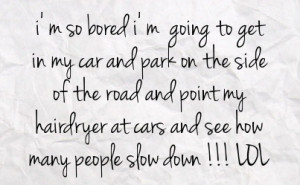 i'm so bored i'm going to get
in my car and park on the side
of the road and point my
hairdryer at cars and see how
many people slow down !!! LOL